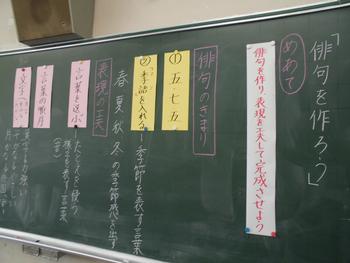 「俳句を作ろう」
めあて
俳句を作り、表現を工夫して完成させよう
俳句のきまり
①五・七・五
②「季語」を入れる
季節を表す言葉
春夏秋冬の季節感を出す
表現の工夫
言葉を選ぶ
たとえを使う
様子を表す言葉
言葉の順序
文字